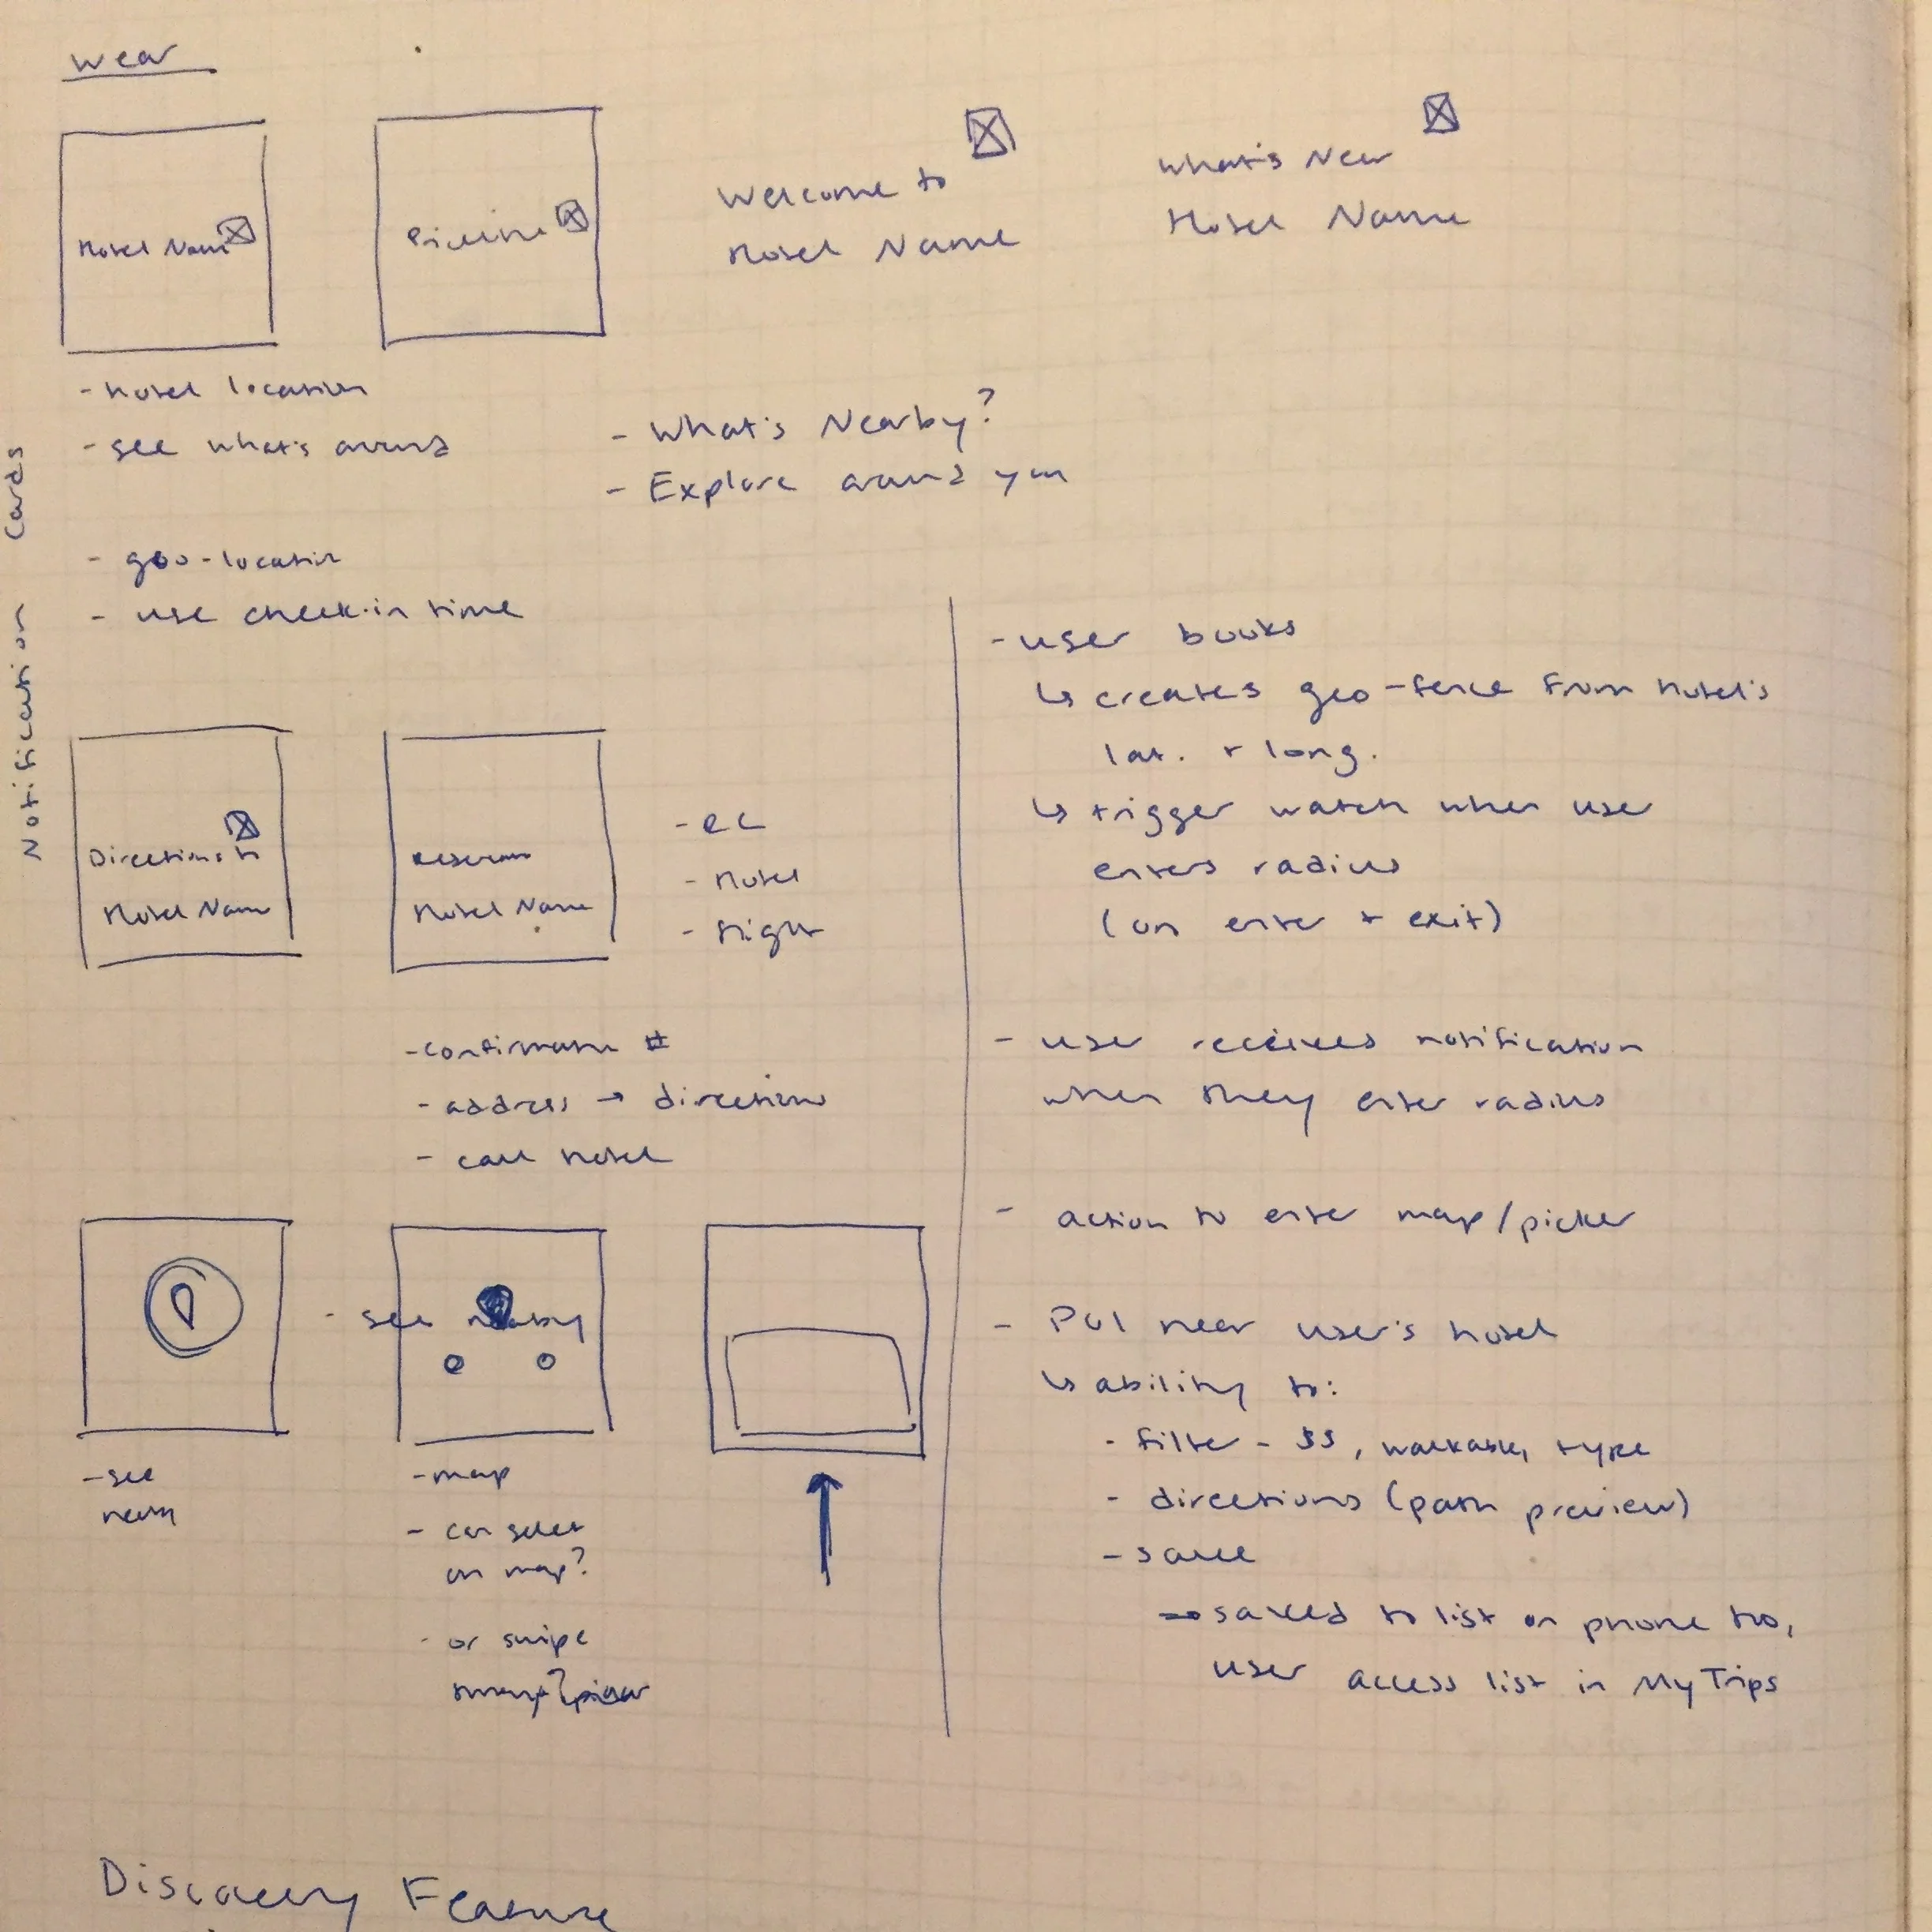 Wear
Hotel Name
Welcome to
Hotel Name
What's New
Hotel Name
- hotel location
- see what's around
- What's Nearby?
- Explore around you
Notification Cards
- geo-location
- use check-in time
Directions to
Hotel Name
Hotel Name
- EC
- Hotel
- flight
- confirmation #
- address → directions
- call hotel
- see nearby
- see
- map
- can select
on map?
- or swipe
- user books
↳ creates geo-fence from hotel's
lat. + long.
↳ trigger watch when user
enters radius
(on enter + exit)
- user receives notification
when they enter radius
- action to enter map/picker
- POI near user's hotel
↳ ability to:
- filter - $$, walkable, type
- directions (path preview)
- save
→ saved to list on phone too,
user access list in My Trips
Discovery Feature